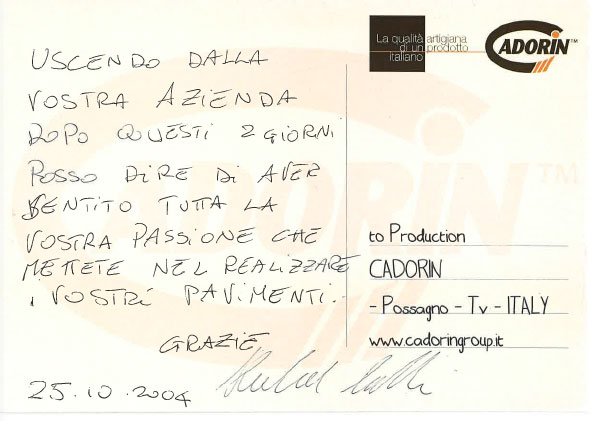 USCENDO DALLA
VOSTRA AZIENDA
DOPO QUESTI 2 GIORNI
POSSO DIRE DI AVER
SENTITO TUTTA LA
VOSTRA PASSIONE CHE
METTETE NEL REALIZZARE
I VOSTRI PAVIMENTI.
GRAZIE
25.10.2004
La qualità artigiana
di un prodotto
italiano
CADORIN™
to Production
CADORIN
- Possagno - Tv - ITALY
www.cadoringroup.it
CADORIN™